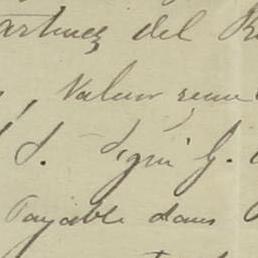 artinez del R
, Valeur reçue
S. Signé G.
Payable dans